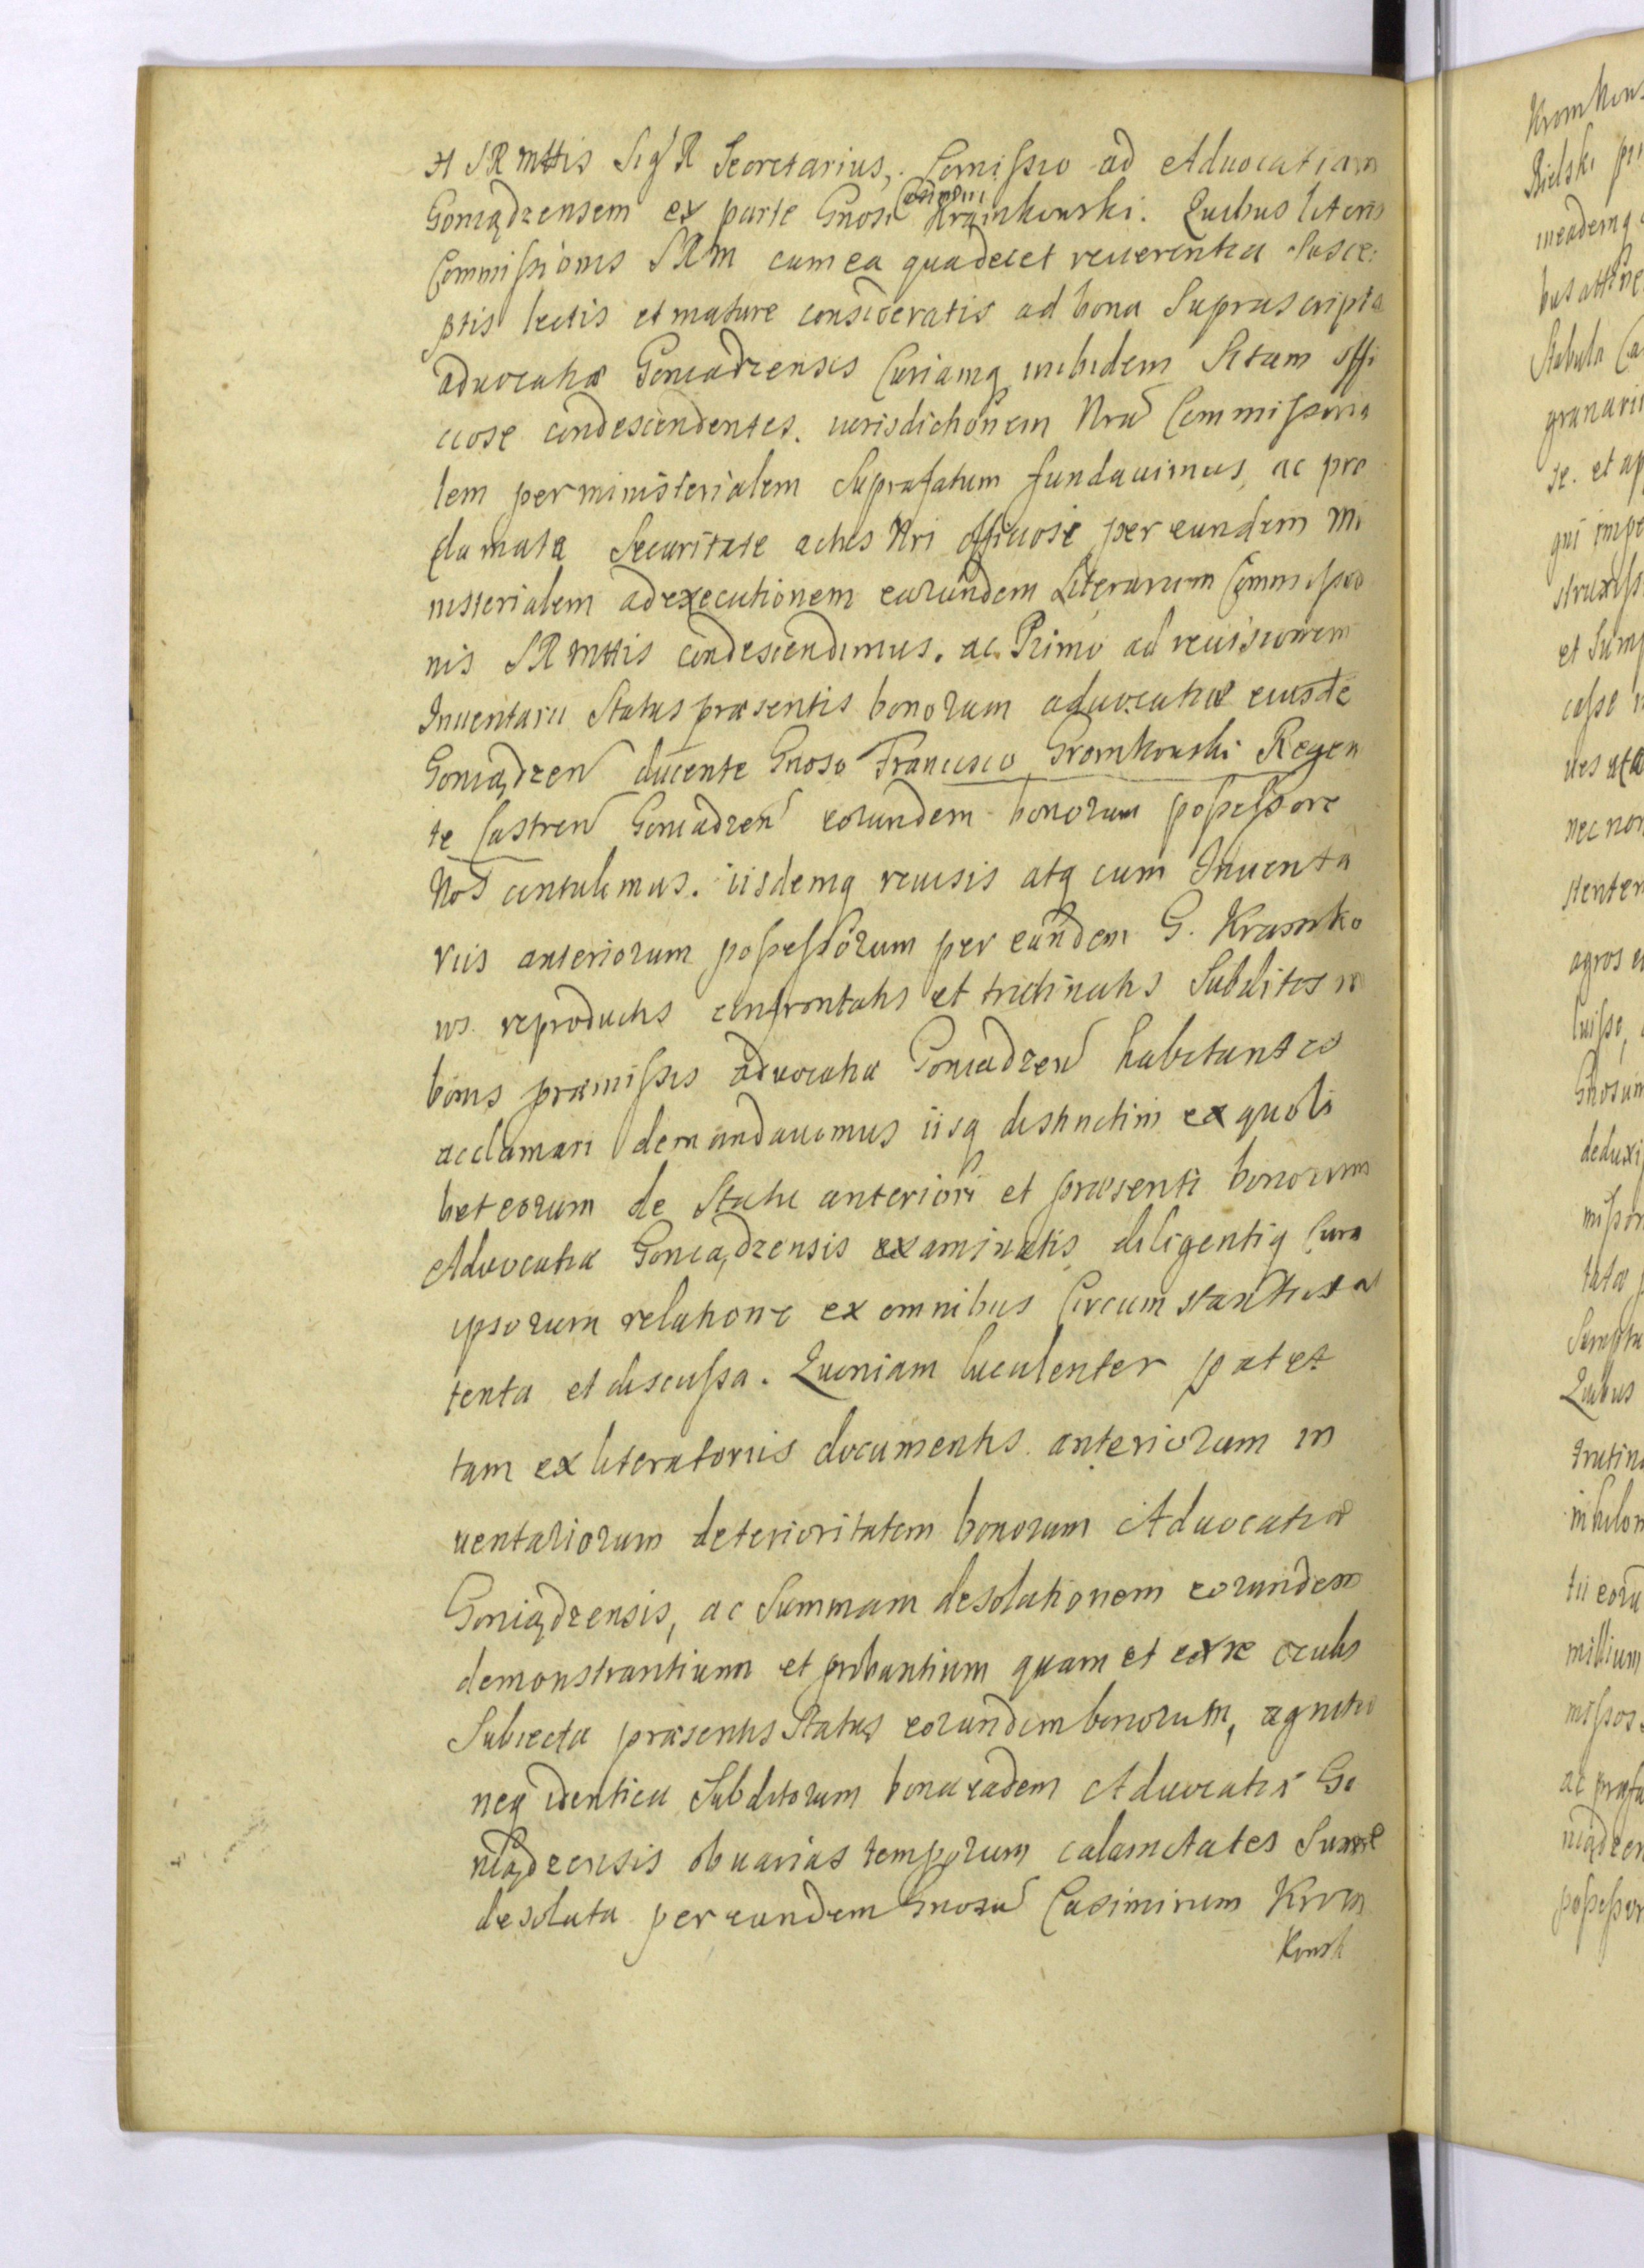 H SR Mttis Sig R Secretarius, Comissio ad Aduocatiam
Goniądzensem ex parte Gnosi Casimiri Kramkowski. Quibus literis
Commissionis SRM cum ea qua decet reuerentia susce:
ptis lectis et mature consideratis ad bona Suprascripta
aduocatiæ Goniadzensis Curiamq inibidem Sitam offi
ciose condescendentes. iurisdictionem Nrã Commissoria
lem per ministerialem Suprafatum fundauimus, ac pro
clamata Securitate actus Nri officiose per eundem Mi
nisterialem ad executionem earundem Literarum Commissio
nis SR Mttis condescendimus. ac Primo ad reuisionem
Inuentarii Status præsentis bonorum aduocatiæ eiusdẽ
Goniądzen ducente Gnoso Francisco Gromkowski Regen
te Castren Goniadzen eorundem bonorum possessore
Nos contulimus. iisdemq reuisis atq cum Inuenta
riis anteriorum possessorum per eundem G. Kramko
ws. reproductis confrontatis et trutinatis Subditos in
bonis præmissis aduocatiæ Goniadzen habitantes
acclamari demandauimus iisq distinctim ex quoli
bet eorum de Statu anteriori et præsenti bonorum
Aduocatiæ Goniądzensis examinatis diligentiq Cura
ipsorum relatione ex omnibus Circumstantiis at
tenta et discussa. Quoniam luculenter patet
tam ex literatoriis documentis anteriorum in
uentariorum deterioritatem bonorum Aduocatiæ
Goniądzensis, ac Summam desolationem eorundem
demonstrantium et probantium quam et ex re oculis
Subiecta præsentis Status eorundem bonorum, agnitio
neq identica Subditorum bona eadem Aduocatiæ Go
niądzensis ob varias temporum calamitates Sumẽ
desolata per eundem Gnosũ Casimirum Krom
Kowsk